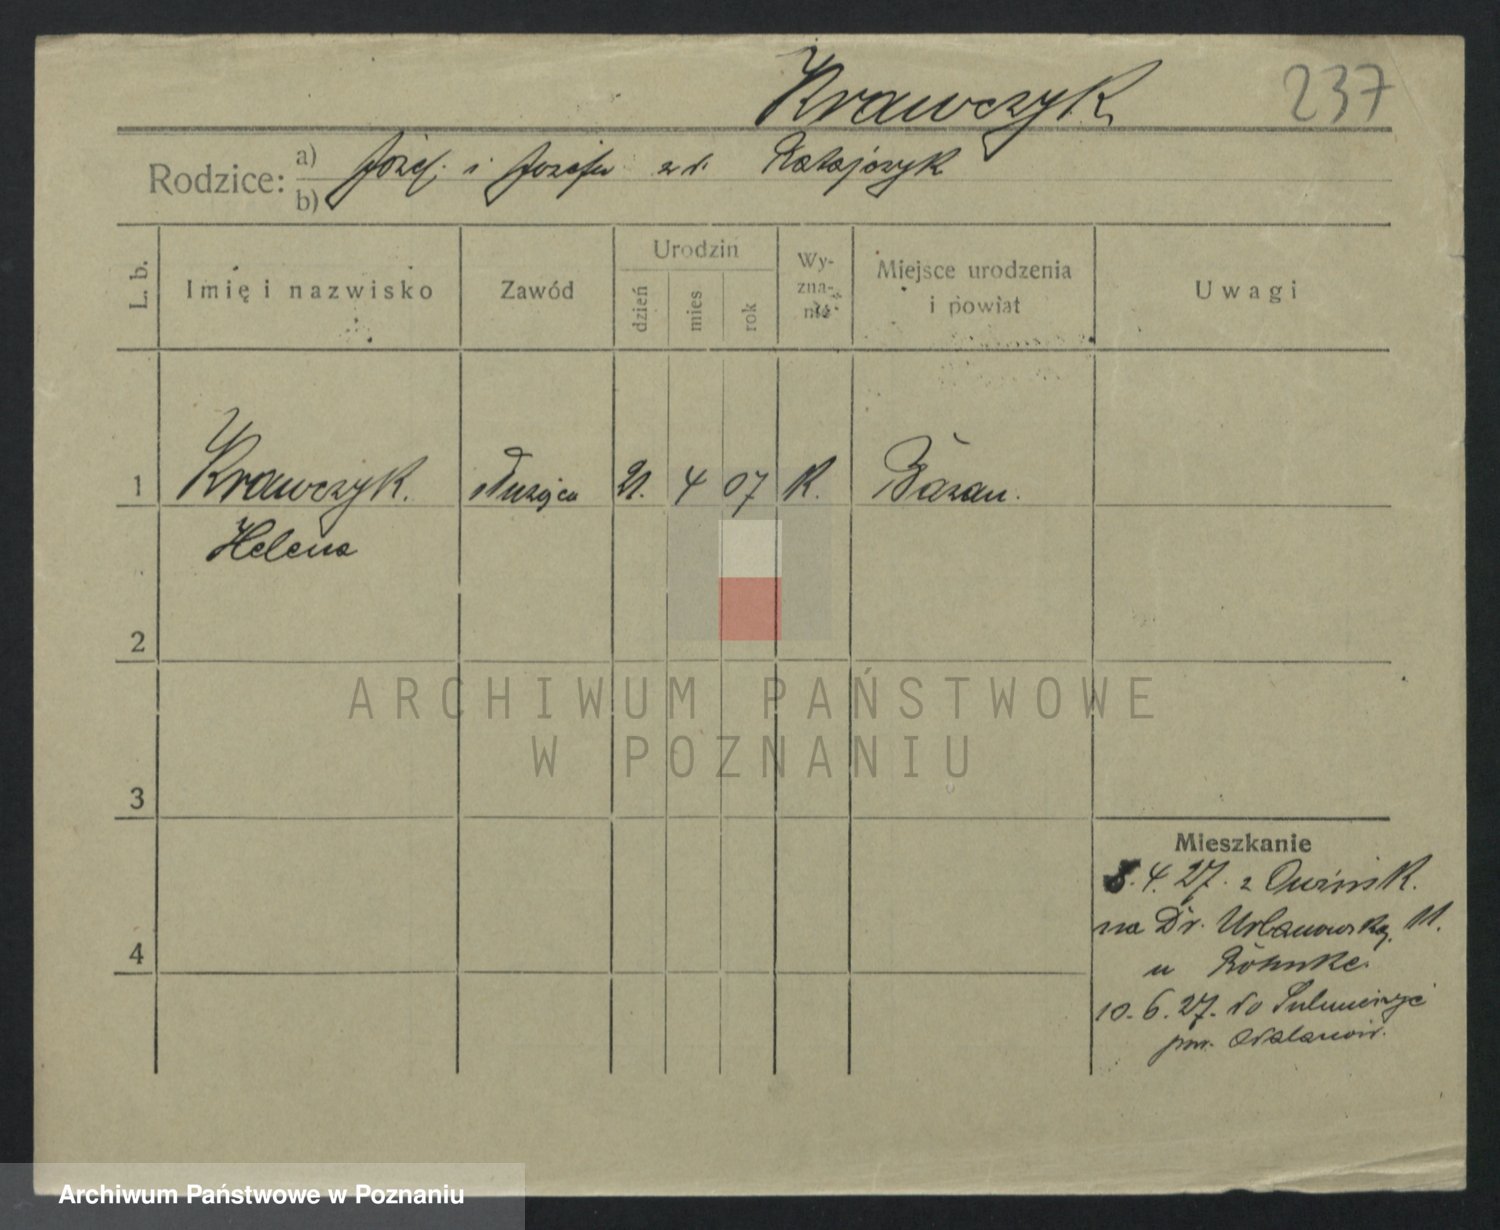 Krawczyk
237
Rodzice: a) Józef. i Józefa z d. Ratajczyk
b)
L. b.
Imię i nazwisko
Zawód
Urodzin
dzień
mies
rok
Wy-
zna-
nie
Miejsce urodzenia
i powiat
Uwagi
1 Krawczyk. służąca 21. 4 07 K.
Helena
2
3
4
Mieszkanie
8. 4. 27. z Owińsk.
na Dr. Urbanowską 11.
u
10. 6. 27. do
pow. Odolanów.
ARCHIWUM PAŃSTWOWE
W POZNANIU
Archiwum Państwowe w Poznaniu